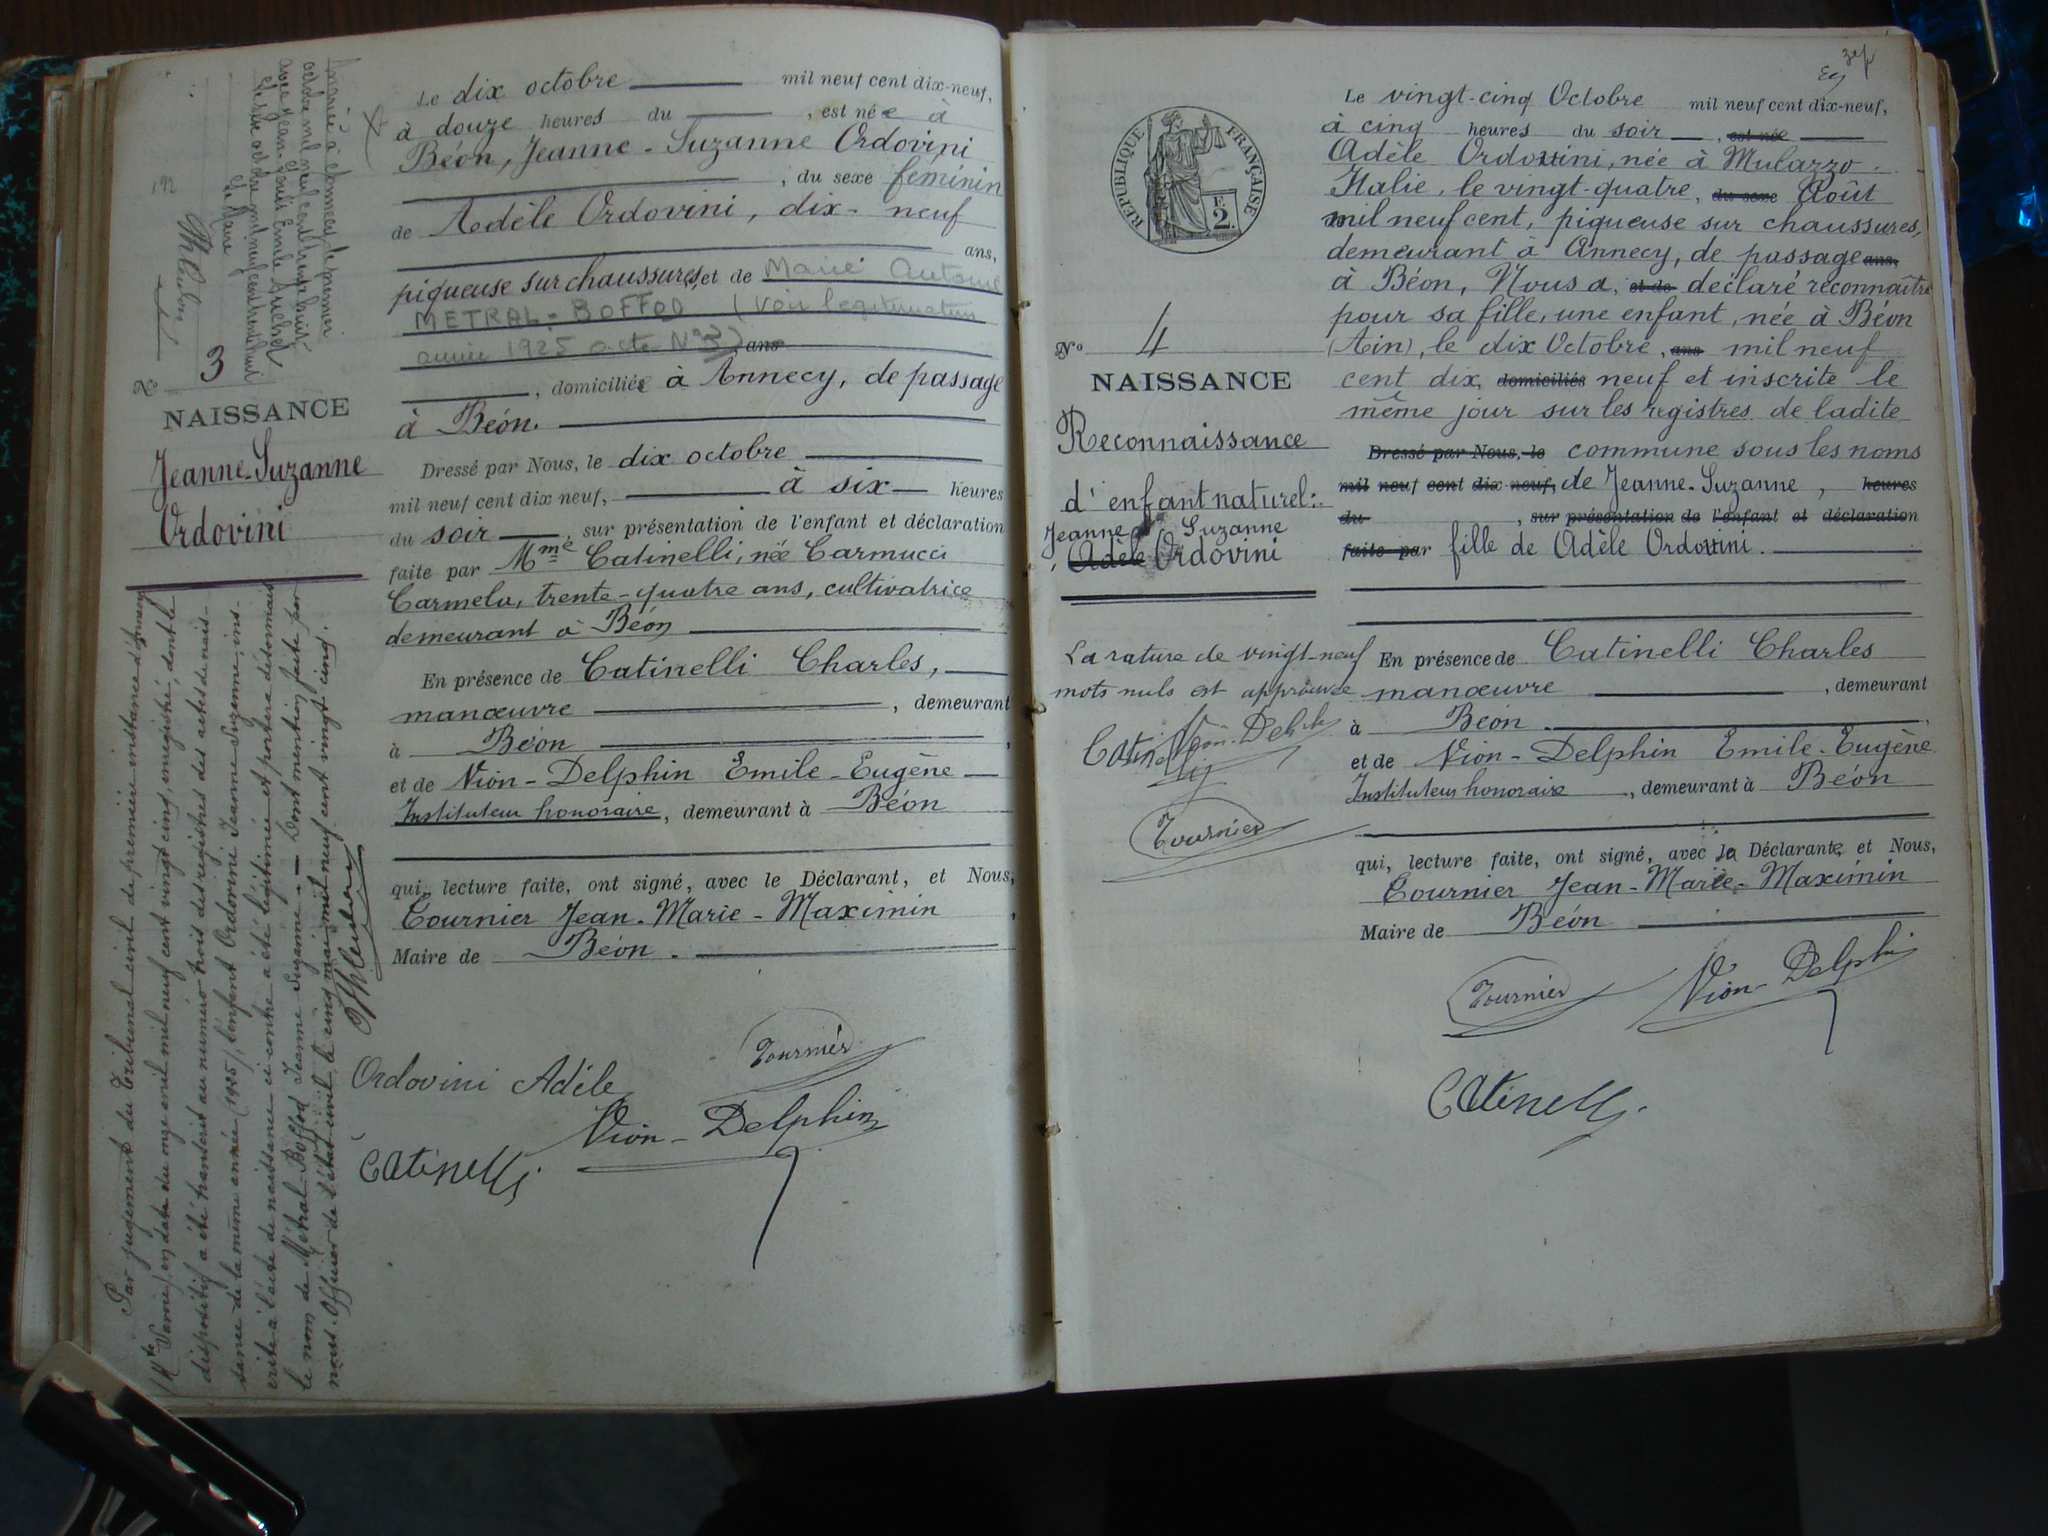 Le dix octobre mil neuf cent dix-neuf,
à douze heures du , est née à
Béon, Jeanne-Suzanne Ordovini
, du sexe féminin
de Adèle Ordovini, dix-neuf
ans,
piqueuse sur chaussures, et de Marie Antoine
METRAL-BOFFOD (Voir légitimation
année 1925 acte N°3) ans
, domiciliée à Annecy, de passage
à Béon.
Dressé par Nous, le dix octobre
mil neuf cent dix neuf, à six heures
du soir , sur présentation de l'enfant et déclaration
faite par Mme Catinelli, née Carmucci
Carmela, trente-quatre ans, cultivatrice
demeurant à Béon
En présence de Catinelli Charles,
manœuvre , demeurant
à Béon ,
et de Vion-Delphin Emile-Eugène
Instituteur honoraire, demeurant à Béon
qui, lecture faite, ont signé, avec le Déclarant, et Nous,
Tournier Jean-Marie-Maximin ,
Maire de Béon.
Tournier
Ordovini Adèle
Vion-Delphin
Catinelli
N° 3
NAISSANCE
Jeanne-Suzanne
Ordovini
192
mariée à Annecy le premier
octobre mil neuf cent trente huit
avec Jean-Louis Emile
le Maire
Par jugement du Tribunal civil de première instance d'Annecy
(Hte Savoie) en date du onze avril mil neuf cent vingt cinq, enregistré, dont le
dispositif a été transcrit au numéro trois des registres des actes de nais-
sance de la même année (1925), l'enfant Ordovini Jeanne Suzanne, ins-
crite à l'acte de naissance ci-contre a été légitimée et portera désormais
le nom de Métral-Boffod Jeanne Suzanne. — Dont mention faite par
nous Officier de l'état civil le cinq mai mil neuf cent vingt cinq.
RÉPUBLIQUE FRANÇAISE
2 F.
Le vingt-cinq Octobre mil neuf cent dix-neuf,
à cinq heures du soir , est née
Adèle Ordovini, née à Mulazzo.
Italie, le vingt-quatre, du sexe Août
mil neuf cent, piqueuse sur chaussures,
demeurant à Annecy, de passage ans,
à Béon, Nous a, et de déclaré reconnaître
pour sa fille, une enfant, née à Béon
(Ain), le dix Octobre, ans mil neuf
cent dix, domiciliés neuf et inscrite le
même jour sur les registres de ladite
Dressé par Nous, le commune sous les noms
mil neuf cent dix neuf, de Jeanne-Suzanne, heures
du , sur présentation de l'enfant et déclaration
faite par fille de Adèle Ordovini.
N° 4
NAISSANCE
Reconnaissance
d'enfant naturel:
Jeanne Suzanne
Adèle Ordovini
La rature de vingt-neuf
mots nuls est approuvée
Catinelli Vion-Delphin
Tournier
En présence de Catinelli Charles
manœuvre , demeurant
à Béon
et de Vion-Delphin Emile-Eugène
Instituteur honoraire , demeurant à Béon
qui, lecture faite, ont signé, avec la Déclarante, et Nous,
Tournier Jean-Marie-Maximin
Maire de Béon
Tournier Vion-Delphin
Catinelli